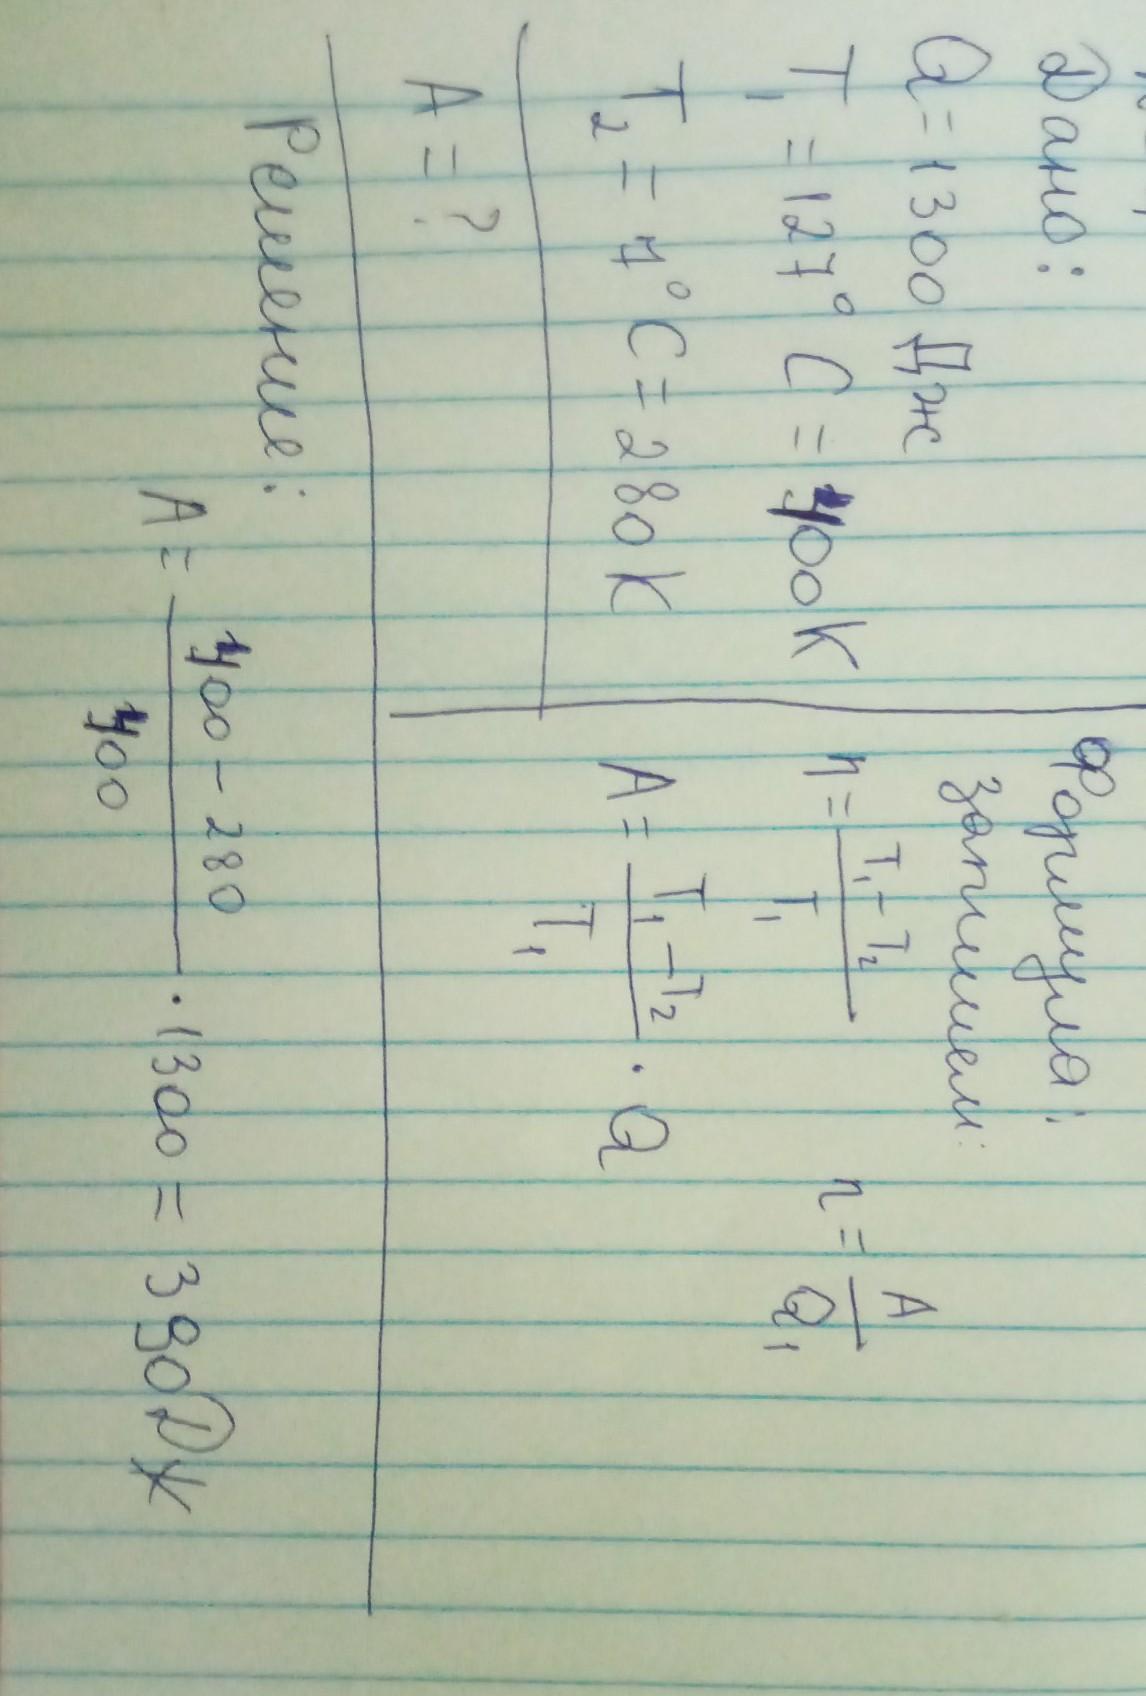 Дано:
Q = 1300 Дж
T₁ = 127° C = 400K
T₂ = 7° C = 280K
A = ?
Формула:
запишем:
η = (T₁ - T₂) / T₁
η = A / Q₁
A = (T₁ - T₂) / T₁ · Q
Решение:
A = (400 - 280) / 400 · 1300 = 390 Дж